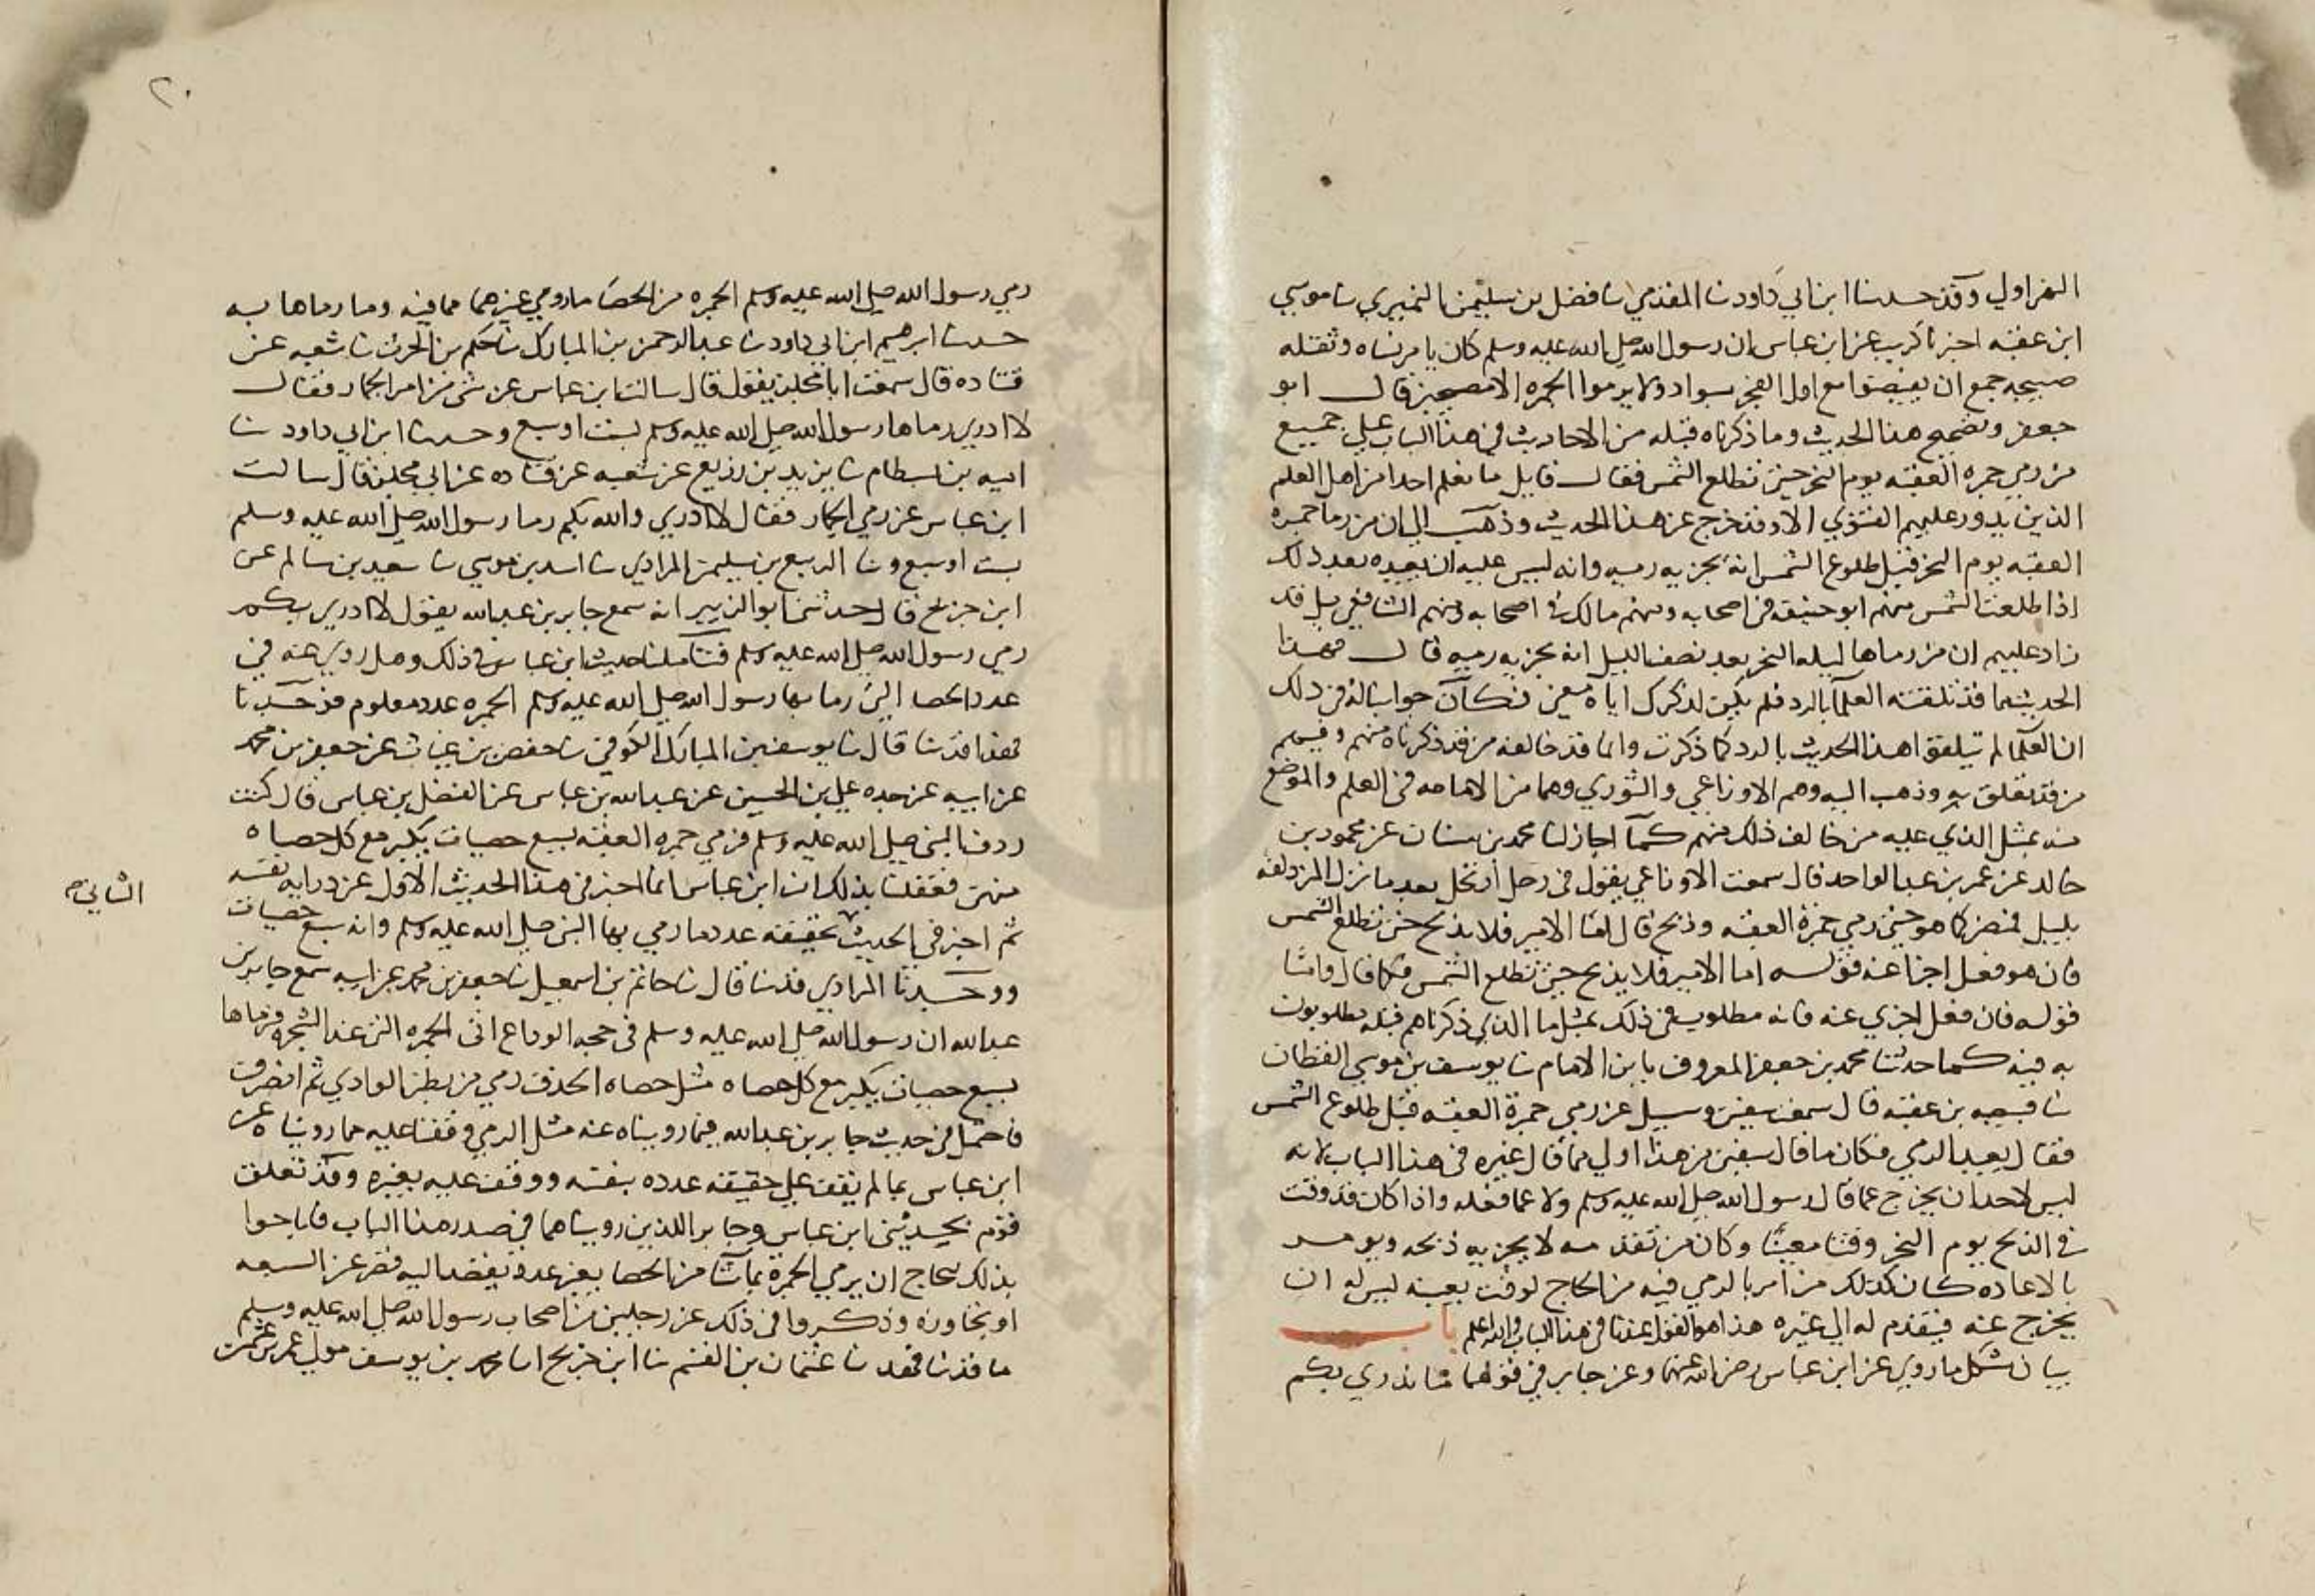 النهر اولي وقد حدثنا ابن ابي داود نا المقدمي نا فضل بن سليمن النميري نا موسي
ابن عقبه اخبرنا كريب عن ابن عباس ان رسول الله صلي الله عليه وسلم كان يامر نساه وثقله
صبيحه جمع ان يفيضوا مع اول الفجر بسواد ولا يرموا الجمره الا مصبحين قال ابو
جعفر وتصحيح هذا الحديث وما ذكرناه قبله من الاحاديث في هذا الباب علي جميع
من رمي جمره العقبه يوم النحر حين تطلع الشمس فقال قايل ما نعلم احدا من اهل العلم
الذين يدور عليهم الفتوي الا وقد خرج عن هذا الحديث وذهب الي ان من رما جمره
العقبه يوم النحر قبل طلوع الشمس انه يجزيه رميه وانه ليس عليه ان يعيده بعد ذلك
اذا طلعت الشمس منهم ابو حنيفه في اصحابه ومنهم مالك في اصحابه ومنهم الشافعي بل قد
زاد عليهم ان من رماها ليله النحر بعد نصف الليل انه يجزيه رميه قال فهذا
الحديث مما قد تلقته العلما بالرد فلم يكن لذكرك اياه معني فكان جوابنا له في ذلك
ان العلما لم يتلقوا هذا الحديث بالرد كما ذكرت وانما قد خالفه من قد ذكرناه منهم وفيهم
من قد تعلق به وذهب اليه وهم الاوزاعي والثوري وهما من الامامه في العلم والموضع
منه بمثل الذي عليه من خالف ذلك منهم كما اجاز لنا محمد بن سنان عن محمود بن
خالد عن عمر بن عبد الواحد قال سمعت الاوزاعي يقول في رجل ارتحل بعد ما نزل المزدلفه
بليل فمضي كما هو حتي رمي جمرة العقبه وذبح قال اما الامير فلا يذبح حتي تطلع الشمس
فان هو فعل اجزا عنه قوله اما الامير فلا يذبح حتي تطلع الشمس فكما قال واما
قوله فان فعل اجزي عنه فانه مطلوب في ذلك بمثل ما الذي ذكرناهم قبله مطلوبون
به فيه كما حدثنا محمد بن جعفر المعروف بابن الامام نا يوسف بن موسي القطان
نا قبيصه بن عقبه قال سمعت سفين وسيل عن رمي جمرة العقبه قبل طلوع الشمس
فقال يعيد الرمي فكان ما قال سفين من هذا اولي مما قال غيره في هذا الباب لانه
ليس لاحد ان يخرج عما قال رسول الله صلي الله عليه وسلم ولا عما فعله واذا كان قد وقت
في الذبح يوم النحر وقتا معينا وكان من تقدمه لا يجزيه ذبحه ويومر
بالاعاده كان كذلك من امر بالرمي فيه من الحاج لوقت بعينه ليس له ان
يخرج عنه فيتقدم له الي غيره هذا هو القول عندنا في هذا الباب والله اعلم باب
بيان مشكل ما روي عن ابن عباس رضي الله عنهما وعن جابر في قولهما ما ندري بكم
٢٠
رمي رسول الله صلي الله عليه وسلم الجمره من الحصا ما روي عن غيرهما مما فيه وما رماها به
حدثنا ابرهيم ابن ابي داود نا عبد الرحمن بن المبارك نا حكم بن الحرث نا شعبه عن
قتاده قال سمعت ابا مجلز يقول قال سالت ابن عباس عن شي من امر الجمار فقال
لا ادري رماها رسول الله صلي الله عليه وسلم بست او سبع وحدثنا ابن ابي داود نا
اميه بن بسطام نا يزيد بن زريع عن شعبه عن قتاده عن ابي مجلز قال سالت
ابن عباس عن رمي الجمار فقال لا ادري والله بكم رما رسول الله صلي الله عليه وسلم
بست او سبع ونا الربيع بن سليمن المرادي نا اسد بن موسي نا سعيد بن سالم عن
ابن جريج قال حدثني ابو الزبير انه سمع جابر بن عبد الله يقول لا ادري بكم
رمي رسول الله صلي الله عليه وسلم فتاملنا حديث ابن عباس في ذلك وهل روي عنه في
عدد الحصا التي رما بها رسول الله صلي الله عليه وسلم الجمره عدد معلوم فوجدنا
فهدا قد نا قال نا يوسف بن المبارك الكوفي نا حفص بن غياث عن جعفر بن محمد
عن ابيه عن جده علي بن الحسين عن عبد الله بن عباس عن الفضل بن عباس قال كنت
ردف النبي صلي الله عليه وسلم فرمي جمره العقبه بسبع حصيات يكبر مع كل حصاه
منهن فعقلنا بذلك ان ابن عباس انما اخبر في هذا الحديث الاول عن درايه نفسه
ثم اخبر في الحديث بحقيقه عدد ما رمي بها النبي صلي الله عليه وسلم وانه سبع حصيات
الثاني صح
ووجدنا المرادي قد نا قال نا حاتم بن اسمعيل نا جعفر بن محمد عن ابيه سمع جابر بن
عبد الله ان رسول الله صلي الله عليه وسلم في حجه الوداع اتي الجمره التي عند الشجره فرماها
بسبع حصيات يكبر مع كل حصاه مثل حصاه الخذف رمي من بطن الوادي ثم انصرف
فاحتمل في حديث جابر بن عبد الله فيما رويناه عنه مثل الرمي وقفنا عليه مما رويناه عن
ابن عباس بما لم يقف علي حقيقه عدده بنفسه ووقف عليه بغيره وقد تعلق
قوم بحديثي ابن عباس وجابر اللذين رويناهما في صدر هذا الباب فاباحوا
بذلك للحاج ان يرمي الجمرة بما شا من الحصا بغير عدد يقصد اليه قصر عن السبعه
او تجاوزه وذكروا في ذلك عن رجلين من اصحاب رسول الله صلي الله عليه وسلم
ما قد نا فهد نا عثمان بن الهيثم نا ابن جريج انا محمد بن يوسف مولي عمرو بن عثمن